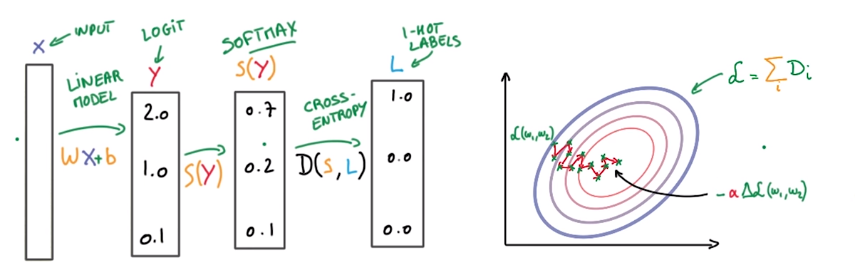 X
INPUT
LINEAR
MODEL
WX+b
LOGIT
Y
2.0
1.0
0.1
S(Y)
SOFTMAX
S(Y)
0.7
0.2
0.1
CROSS-
ENTROPY
D(S,L)
1-HOT
LABELS
L
1.0
0.0
0.0
ℒ(w₁,w₂)
ℒ = Σᵢ Dᵢ
-α Δℒ(w₁,w₂)